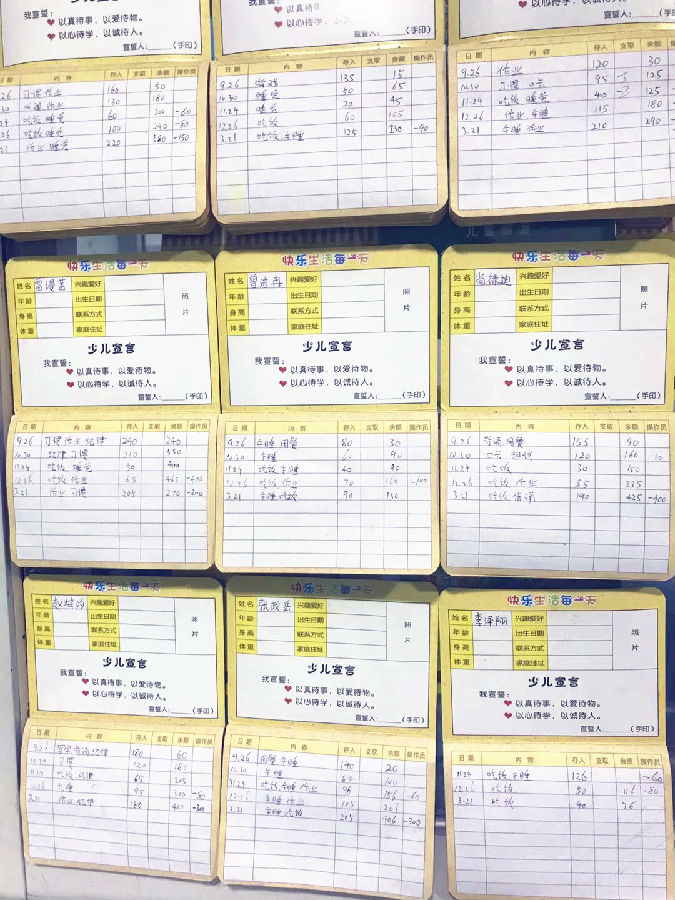 我宣誓：
❤ 以真待事、以爱待物。
❤ 以心待学、以诚待人。
宣誓人：____（手印）
❤ 以真待事、以爱待物。
❤ 以心待学、以诚待人。
宣誓人：____（手印）
❤ 以真待事、以爱待物。
❤ 以心待学、以诚待人。
宣誓人：____（手印）
日期 内容 存入 支取 余额 操作员
9.26 习惯 作业 160 50
作业 130 180
吃饭 睡觉 60 300 -60
吃饭 睡觉 100 240 -80
3.21 作业 睡觉 220 -150
日期 内容 存入 支取 余额 操作员
9.26 游戏 135 15
10.30 睡觉 50 65
11.24 20 45
12.26 吃饭 60 105
3.21 吃饭 午睡 125 130 -90
日期 内容 存入 支取 余额 操作员
9.26 作业 120 30
10.30 习惯 95 125
11.24 吃饭 睡觉 40 125
12.26 作业 午睡 115 180
3.21 午睡 作业 210 290
快乐生活每一天
姓名 兴趣爱好
年龄 出生日期 照
身高 联系方式 片
体重 家庭住址
少儿宣言
我宣誓：
❤ 以真待事、以爱待物。
❤ 以心待学、以诚待人。
宣誓人：____（手印）
快乐生活每一天
姓名 兴趣爱好
年龄 出生日期 照
身高 联系方式 片
体重 家庭住址
少儿宣言
我宣誓：
❤ 以真待事、以爱待物。
❤ 以心待学、以诚待人。
宣誓人：____（手印）
快乐生活每一天
姓名 兴趣爱好
年龄 出生日期 照
身高 联系方式 片
体重 家庭住址
少儿宣言
我宣誓：
❤ 以真待事、以爱待物。
❤ 以心待学、以诚待人。
宣誓人：____（手印）
日期 内容 存入 支取 余额 操作员
9.26 习惯 作业 纪律 240 240
10.30 纪律 习惯 210 350
11.24 吃饭 睡觉 50 400
12.26 吃饭 作业 65 465
3.21 作业 习惯 205 270 -200
日期 内容 存入 支取 余额 操作员
9.26 午睡 用餐 80 30
10.30 午睡 60 90
11.24 吃饭 午睡 40
12.26 吃饭 作业 70 160 -100
3.21 午睡 吃饭 90
日期 内容 存入 支取 余额 操作员
9.26 用餐 155 40
10.30 120 160
11.24 吃饭 30 150
12.26 吃饭 作业 85 235
3.21 吃饭 190 425 -400
快乐生活每一天
姓名 兴趣爱好
年龄 出生日期 照
身高 联系方式 片
体重 家庭住址
少儿宣言
我宣誓：
❤ 以真待事、以爱待物。
❤ 以心待学、以诚待人。
宣誓人：____（手印）
快乐生活每一天
姓名 兴趣爱好
年龄 出生日期 照
身高 联系方式 片
体重 家庭住址
少儿宣言
我宣誓：
❤ 以真待事、以爱待物。
❤ 以心待学、以诚待人。
宣誓人：____（手印）
快乐生活每一天
姓名 李泽翔 兴趣爱好
年龄 出生日期 照
身高 联系方式 片
体重 家庭住址
少儿宣言
我宣誓：
❤ 以真待事、以爱待物。
❤ 以心待学、以诚待人。
宣誓人：____（手印）
日期 内容 存入 支取 余额 操作员
9.26 纪律 180 60
10.30 习惯 120 160
11.24 吃饭 纪律 65 205
12.26 95 300 -80
3.21 作业 纪律 180 400 -300
日期 内容 存入 支取 余额 操作员
9.26 用餐 午睡 140 20
10.30 午睡 60
11.24 吃饭 午睡 作业 96 156 -60
12.26 午睡 作业 105 201
3.21 午睡 吃饭 205 406 -300
日期 内容 存入 支取 余额 操作员
11.24 吃饭 午睡 126 -60
12.26 吃饭 50 116 -80
3.21 吃饭 40 76